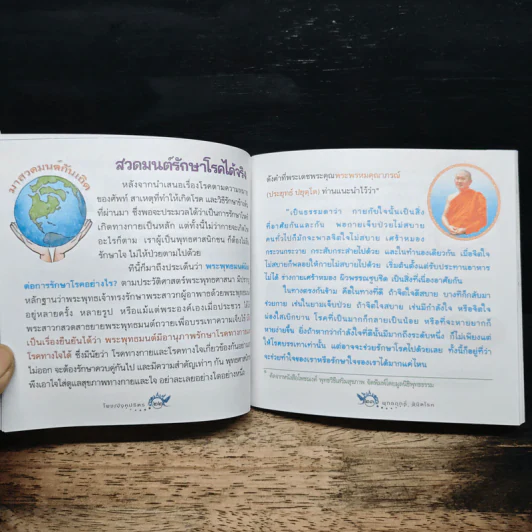 มาสวดมนต์กันเถิด
สวดมนต์รักษาโรคได้จริง
หลังจากนำเสนอเรื่องโรคตามความหมาย
ของศัพท์ สาเหตุที่ทำให้เกิดโรค และวิธีรักษาข้างต้น
ที่ผ่านมา ซึ่งพอจะประมวลได้ว่าเป็นการรักษาโรคที่
เกิดทางกายเป็นหลัก แต่ทั้งนี้ไม่ว่ากายจะเกิดโรค
อะไรก็ตาม เราผู้เป็นพุทธศาสนิกชน ก็ต้องไม่ลืม
รักษาใจ ไม่ให้ป่วยตามไปด้วย
ทีนี้ก็มาถึงประเด็นว่า พระพุทธมนต์มีผล
ต่อการรักษาโรคอย่างไร? ตามประวัติศาสตร์พระพุทธศาสนา มีปรากฏ
หลักฐานว่าพระพุทธเจ้าทรงรักษาพระสาวกผู้อาพาธด้วยพระพุทธมนต์
อยู่หลายครั้ง หลายรูป หรือแม้แต่พระองค์เองเมื่อประชวร ก็ได้ให้
พระสาวกสวดสาธยายพระพุทธมนต์ถวายเพื่อบรรเทาความเจ็บไข้ นี้
เป็นเรื่องยืนยันได้ว่า พระพุทธมนต์มีอานุภาพรักษาโรคทางกายและ
โรคทางใจได้ ซึ่งมีนัยว่า โรคทางกายและโรคทางใจเกี่ยวข้องกันอย่างแยก
ไม่ออก จะต้องรักษาควบคู่กันไป และมีความสำคัญเท่าๆ กัน พุทธศาสนิกชน
พึงเอาใจใส่ดูแลสุขภาพทางกายและใจ อย่าละเลยอย่างใดอย่างหนึ่ง
ดังคำที่พระเดชพระคุณพระพรหมคุณาภรณ์
(ประยุทธ์ ปยุตฺโต) ท่านแนะนำไว้ว่า*
"เป็นธรรมดาว่า กายกับใจนั้นเป็นสิ่ง
ที่อาศัยกันและกัน พอกายเจ็บป่วยไม่สบาย
คนทั่วไปก็มักจะพาลจิตใจไม่สบาย เศร้าหมอง
กระวนกระวาย กระสับกระส่ายไปด้วย และในทำนองเดียวกัน เมื่อจิตใจ
ไม่สบายก็พลอยให้กายไม่สบายไปด้วย เริ่มต้นตั้งแต่รับประทานอาหาร
ไม่ได้ ร่างกายเศร้าหมอง ผิวพรรณซูบซีด เป็นสิ่งที่เนื่องอาศัยกัน
ในทางตรงกันข้าม คือในทางที่ดี ถ้าจิตใจดีสบาย บางทีก็กลับมา
ช่วยกาย เช่นในยามเจ็บป่วย ถ้าจิตใจสบาย เช่นมีกำลังใจ หรือจิตใจ
ผ่องใสเบิกบาน โรคที่เป็นมากก็กลายเป็นน้อย หรือที่จะหายยากก็
หายง่ายขึ้น ยิ่งถ้าหากว่ากำลังใจที่ดีนั้นมีมากถึงระดับหนึ่ง ก็ไม่เพียงแต่
ให้โรคบรรเทาเท่านั้น แต่อาจจะช่วยรักษาโรคไปด้วยเลย ทั้งนี้ก็อยู่ที่ว่า
จะช่วยทำใจของเราหรือรักษาใจของเราได้มากแค่ไหน